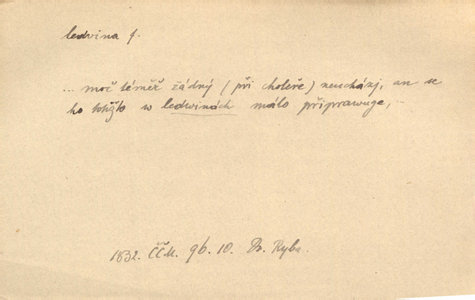 ledvina f.
... moč téměř žádný (při choleře) neuscházj, an se
ho totižto w ledwinách málo připrawuge, ...
1832. ČČM. 96. 10. Dr. Ryba.